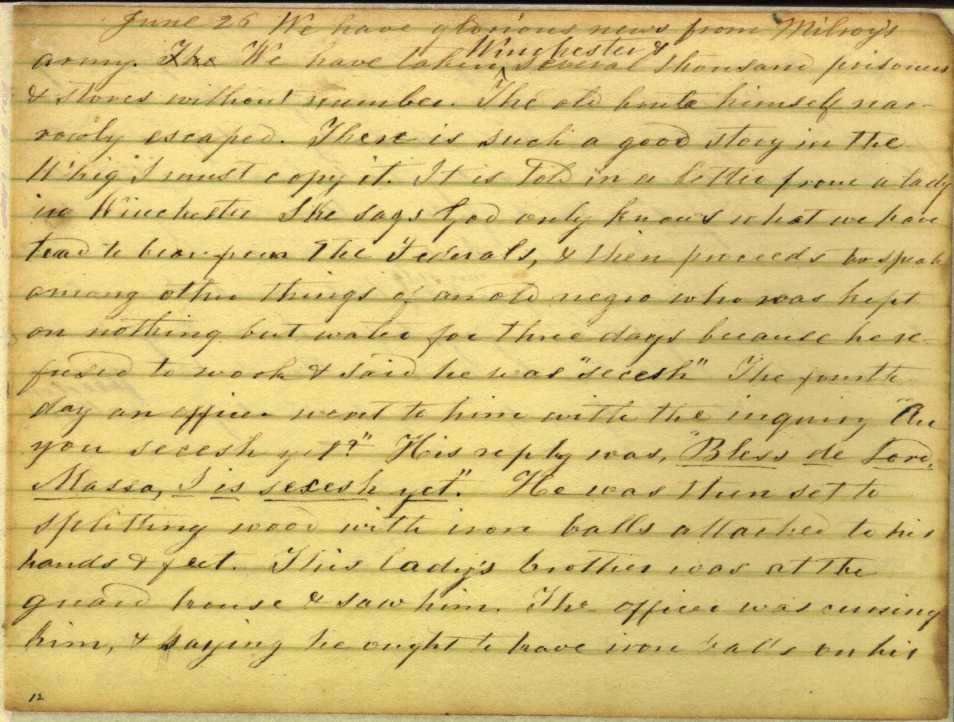 June 26 We have glorious news from Milroy's
army. The We have taken Winchester & several thousand prisoners
& stores without number. The old brute himself nar-
rowly escaped. There is such a good story in the
Whig I must copy it. It is told in a letter from a lady
in Winchester She says God only knows what we have
had to bear from the Federals, & then proceeds to speak
among other things of an old negro who was kept
on nothing but water for three days because he re-
fused to work & said he was "secesh" The fourth
day an officer went to him with the inquiry "Are
you secesh yet?" His reply was, "Bless de Lord,
Massa, I is secesh yet". He was then set to
splitting wood with iron balls attached to his
hands & feet. This lady's brother was at the
guard house & saw him. The officer was cursing
him, & saying he ought to have iron balls on his
12